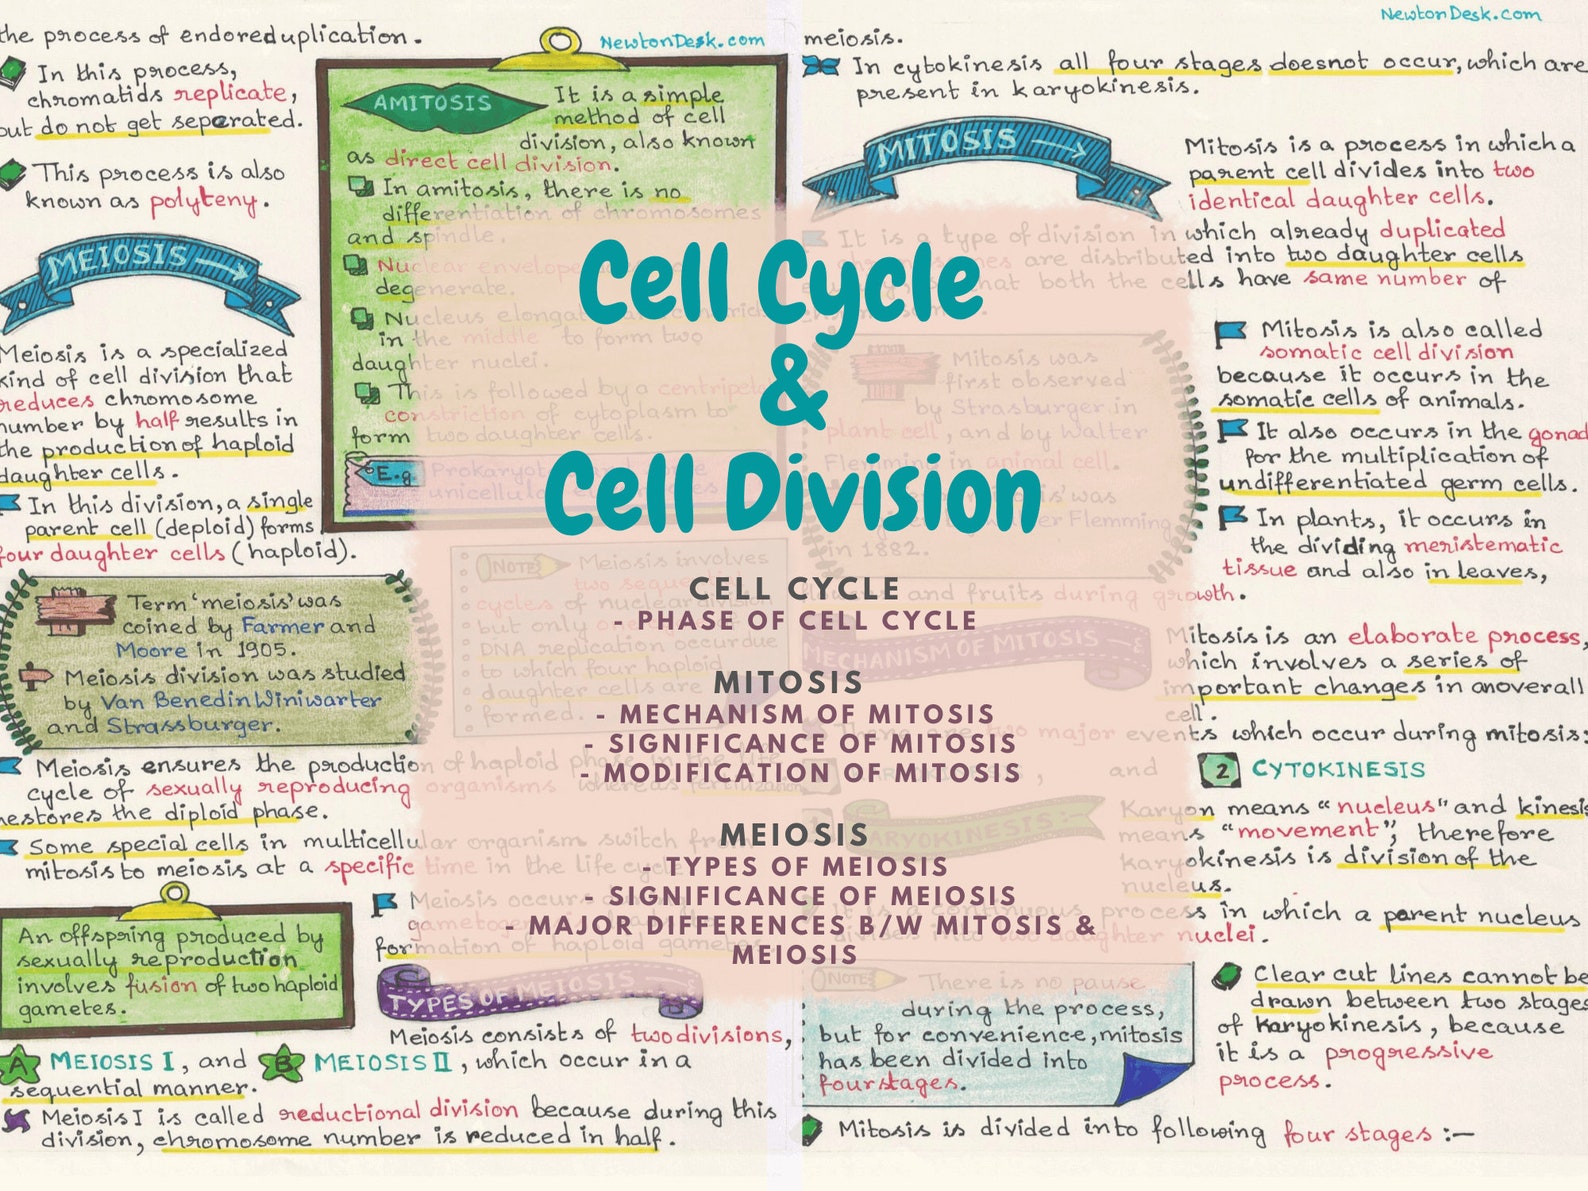 the process of endoreduplication.
In this process,
chromatids replicate,
but do not get seperated.
This process is also
known as polyteny.
MEIOSIS
Meiosis is a specialized
kind of cell division that
reduces chromosome
number by half results in
the production of haploid
daughter cells.
In this division, a single
parent cell (deploid) forms
four daughter cells (haploid).
Term 'meiosis' was
coined by Farmer and
Moore in 1905.
Meiosis division was studied
by Van Benedin Winiwarter
and Strassburger.
Meiosis ensures the production of haploid phase in the life
cycle of sexually reproducing organisms whereas fertilization
restores the diploid phase.
Some special cells in multicellular organism switch from
mitosis to meiosis at a specific time in the life cycle
An offspring produced by
sexually reproduction
involves fusion of two haploid
gametes.
Meiosis occurs
formation of haploid gametes.
TYPES OF MEIOSIS
Meiosis consists of two divisions,
A MEIOSIS I, and B MEIOSIS II, which occur in a
sequential manner.
Meiosis I is called reductional division because during this
division, chromosome number is reduced in half.
NewtonDesk.com
AMITOSIS
It is a simple
method of cell
division, also known
as direct cell division.
In amitosis, there is no
differentiation of chromosomes
and spindle.
Nuclear envelope
degenerate.
Nucleus elongat
in the middle to form two
daughter nuclei.
This is followed by a centripetal
constriction of cytoplasm to
form two daughter cells.
E.g
Prokaryot
unicellula
NOTE
Meiosis involves
two seque
cycles of nuclear division
but only
DNA replication occur due
to which four haploid
daughter cells are
formed.
Cell Cycle
&
Cell Division
CELL CYCLE
- PHASE OF CELL CYCLE
MITOSIS
- MECHANISM OF MITOSIS
- SIGNIFICANCE OF MITOSIS
- MODIFICATION OF MITOSIS
MEIOSIS
- TYPES OF MEIOSIS
- SIGNIFICANCE OF MEIOSIS
- MAJOR DIFFERENCES B/W MITOSIS &
MEIOSIS
NewtonDesk.com
meiosis.
In cytokinesis all four stages doesnot occur, which are
present in karyokinesis.
MITOSIS
Mitosis is a process in which a
parent cell divides into two
identical daughter cells.
It is a type of division in which already duplicated
are distributed into two daughter cells
that both the cells have same number of
Mitosis was
first observed
by Strasburger in
plant cell, and by Walter
Flemming in animal cell.
was
Walter Flemming
in 1882.
Mitosis is also called
somatic cell division
because it occurs in the
somatic cells of animals.
It also occurs in the gonad
for the multiplication of
undifferentiated germ cells.
In plants, it occurs in
the dividing meristematic
tissue and also in leaves,
and fruits during growth.
MECHANISM OF MITOSIS
Mitosis is an elaborate process,
which involves a series of
important changes in anoverall
cell.
There are two major events which occur during mitosis:
, and 2 CYTOKINESIS
KARYOKINESIS:-
Karyon means "nucleus" and kinesis
means "movement", therefore
karyokinesis is division of the
nucleus.
It is a continuous process in which a parent nucleus
divides into two daughter nuclei.
NOTE
There is no pause
during the process,
but for convenience, mitosis
has been divided into
four stages.
Clear cut lines cannot be
drawn between two stages
of karyokinesis, because
it is a progressive
process.
Mitosis is divided into following four stages :—